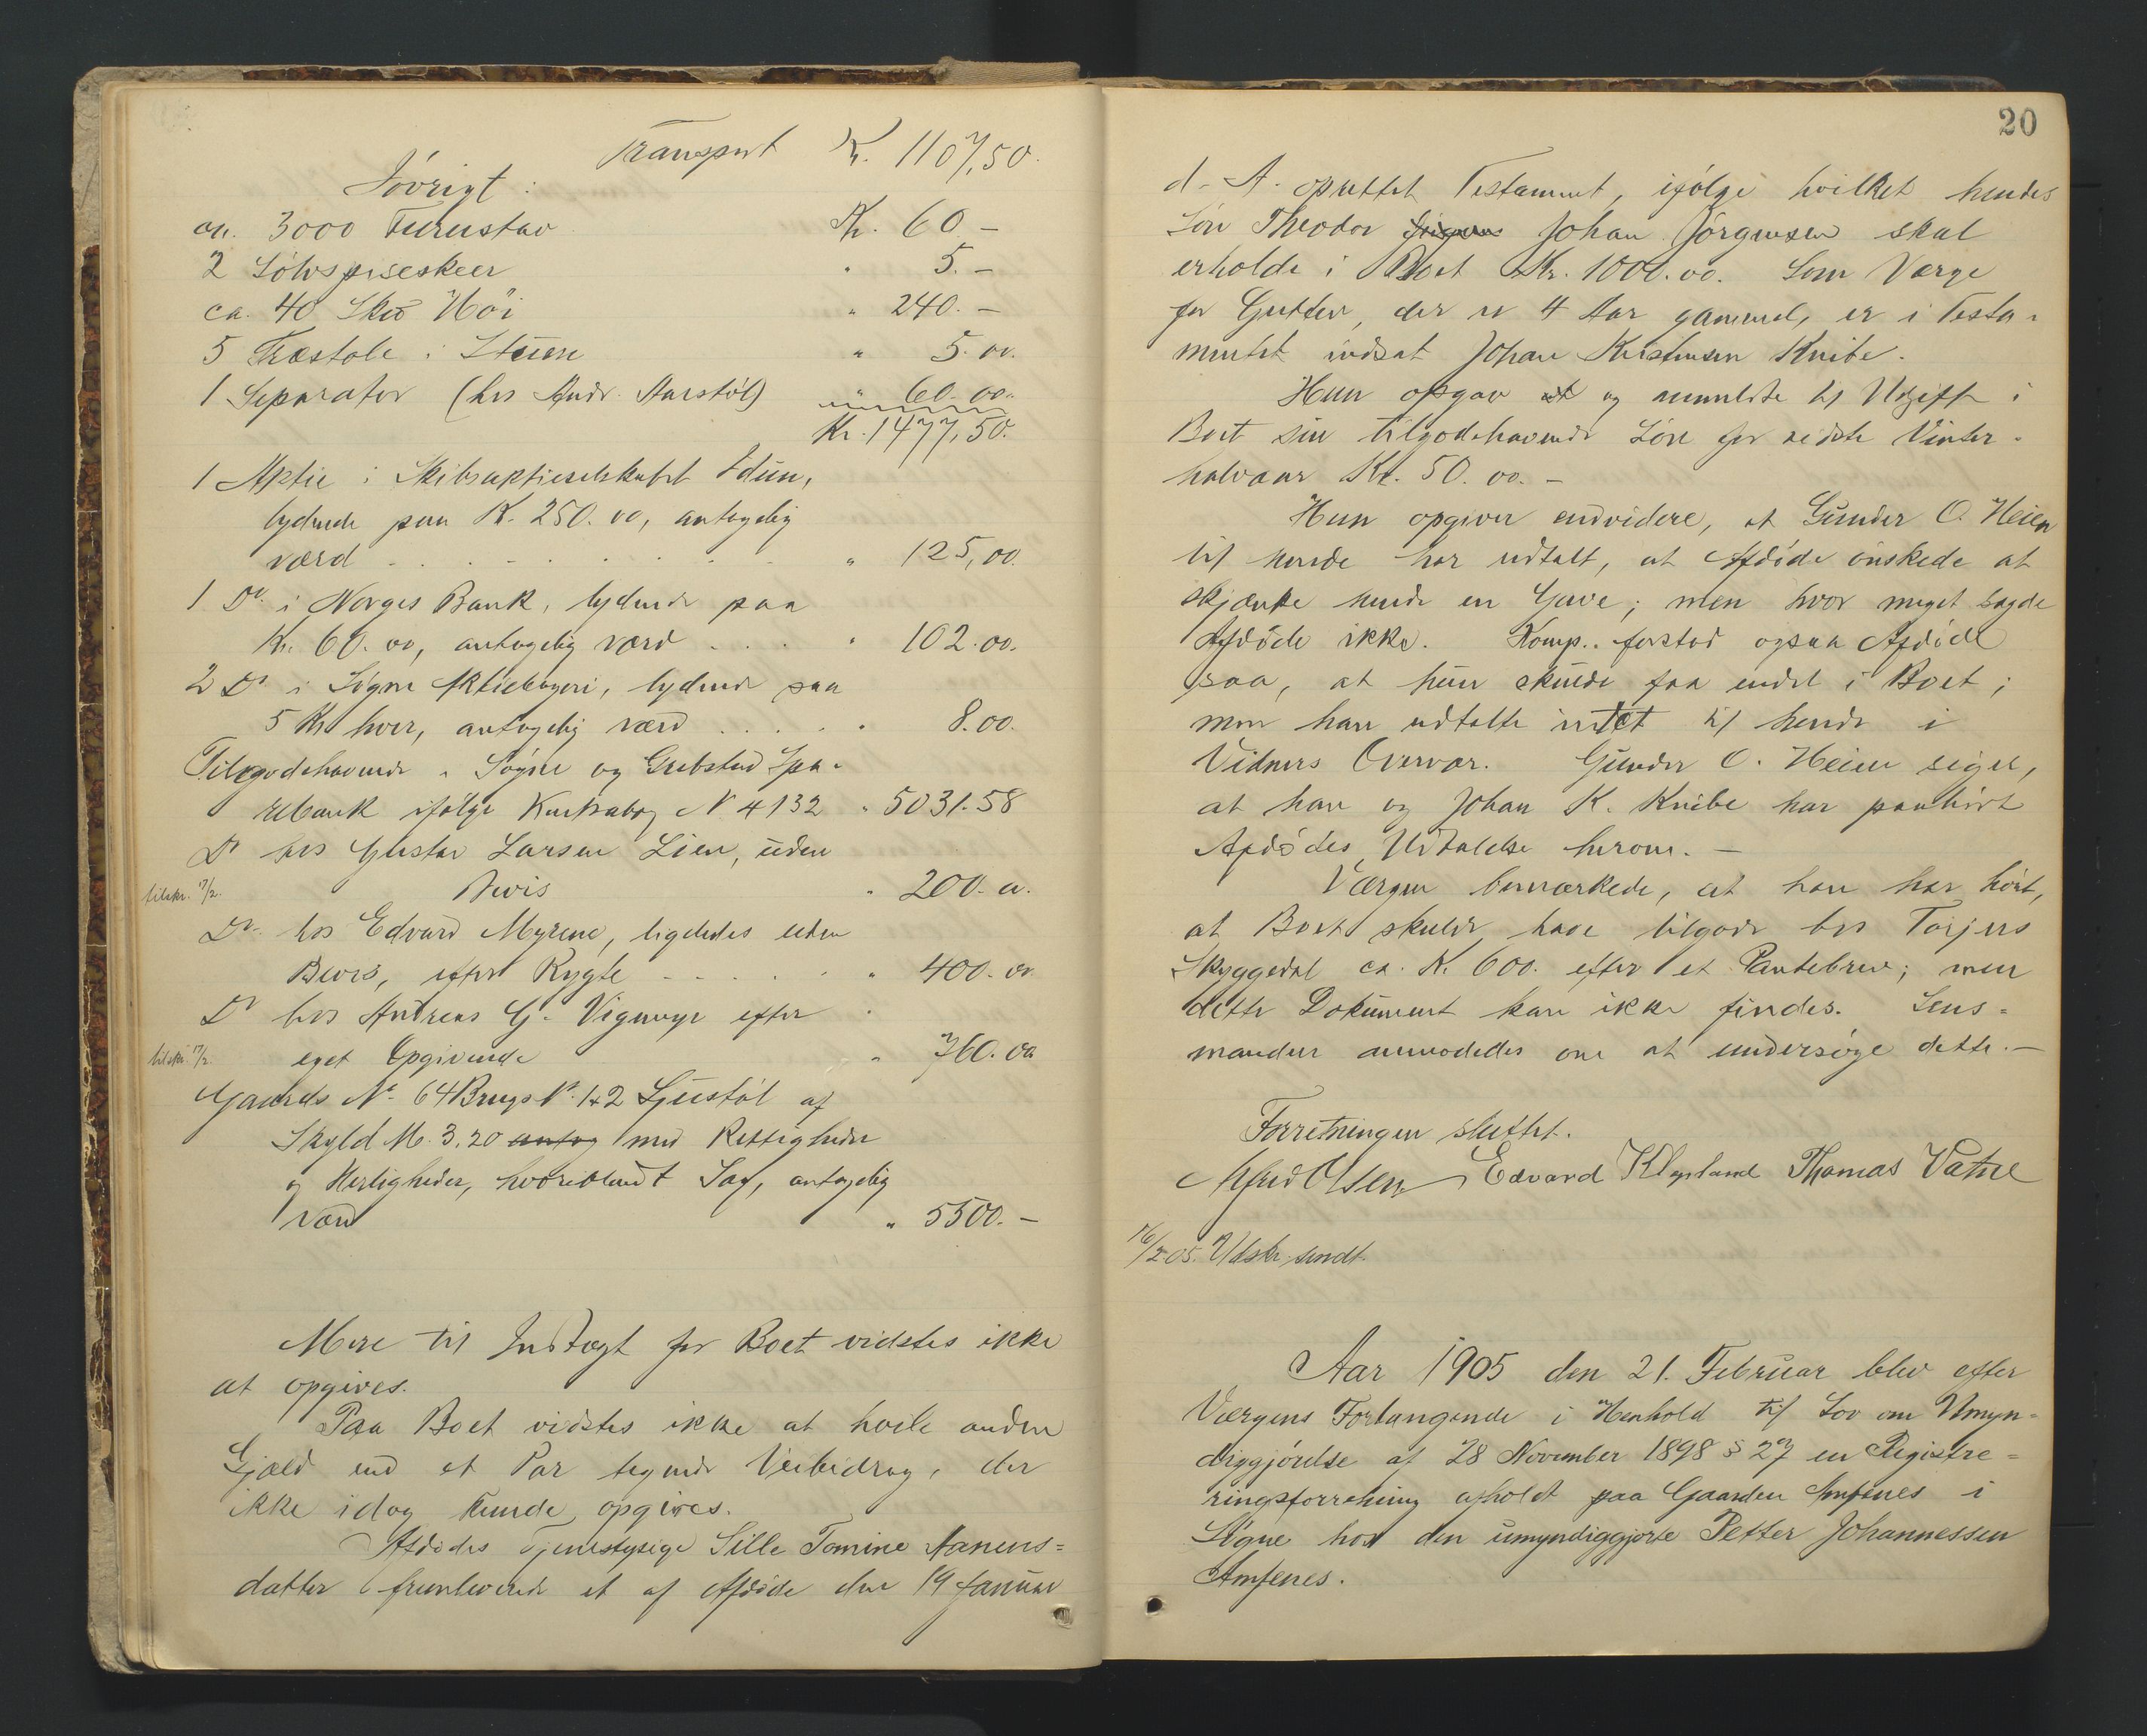 Transport Kr. 1107,50.
Iøvrigt:
ca. 3000 Furustav Kr. 60 –
2 Sølvspiseskeer " 5. –
ca. 40 Høi " 240. –
5 Træstole i Stuen " 5. oo.
1 Separator (hos Andr. Aarstøl) " 60. oo.
Kr. 1477,50.
1 Aktie i Skibsaktieselskabet Idun,
lydende paa Kr. 250. oo, antagelig
værd " 125,00.
1 Do. i Norges Bank, lydende paa
Kr. 60. oo, antagelig værd " 102.00.
2 Do i Søgne Aktiebageri, lydende paa
5 Kr hver, antagelig værd " 8.00.
Tilgodehavende i Søgne og Greibstad Spa-
rebank ifølge Kontrabog No 4132 " 5031.58
Do hos Gustav Larsen Lien, uden
tilskr. 17/2. Bevis " 200. oo.
Do. hos Edvard Myrene, ligeledes uden
Bevis, efter Rygte " 400. oo
Do hos Andreas G. Vigemyr efter
tilskr. 17/2. eget Opgivende " 760. oo
Gaards No. 64 Brugs No. 1 & 2 Ljustøl af
Skyld M. 3.20 antag med Rettigheder
og Herligheder, hvoriblandt Sag, antagelig
værd " 5500. –
Mere til Indtægt for Boet vidstes ikke
at opgives.
Paa Boet vidstes ikke at hvile anden
Gjæld end et Par Veibidrag, der
ikke idag kunde opgives.
Afdødes Tjenestepige Sille Tomine Aanens=
datter fremleverede et af Afdøde den 19 Januar
20
d. A. oprettet Testament, ifølge hvilket hendes
Søn Theodor Johan Jørgensen skal
erholde i Boet Kr. 1000. oo. Som Værge
for Gutten, der er 4 Aar gammel, er i Testa-
mentet indsat Johan Kristensen Knibe.
Hun opgav at og anmeldte til Udgift i
Boet sin tilgodehavende Løn for sidste Vinter-
halvaar Kr. 50. oo. –
Hun opgiver endvidere, at Gunder O. Heien
til hende har udtalt, at Afdøde ønskede at
skjænke hende en Gave; men hvor meget sagde
Afdøde ikke. Komp. forstod ogsaa Afdøde
saa, at hun skulde faa endel i Boet;
men han udtalte intet til hende i
Vidners Overvær. Gunder O. Heien siger,
at han og Johan K. Knibe har paahørt
Afdødes Udtalelse herom. –
Værgen bemærkede, at han har hørt,
at Boet skulde have tilgode hos Torjus
Skyggedal ca. Kr. 600. efter et Pantebrev; men
dette Dokument kan ikke findes. Lens=
manden anmodedes om at undersøge dette. –
Forretningen sluttet.
Alfred Olsen Edvard Klepland Thomas Vatne
16/2 05. Udskr. sendt.
Aar 1905 den 21. Februar blev efter
Værgens Forlangende i Henhold til Lov om Umyn=
diggjørelse af 28 November 1898 § 27 en Registre=
ringsforretning afholdt paa Gaarden Amfenes i
Søgne hos den umyndiggjorte Petter Johannessen
Amfenes.